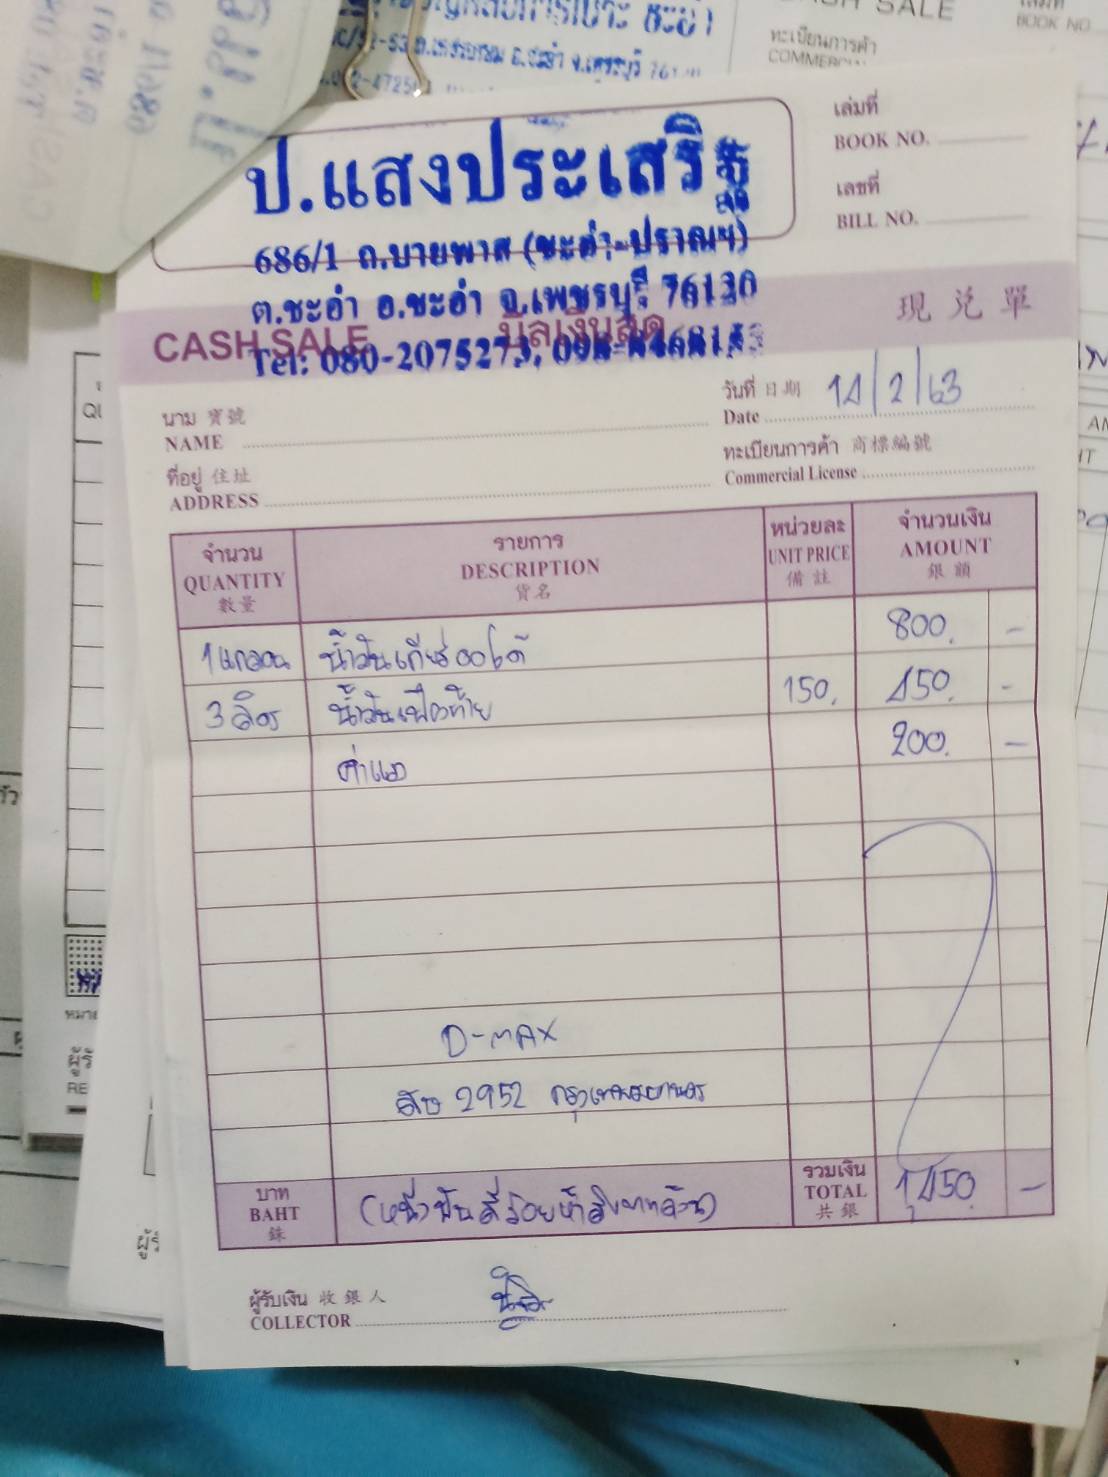 CASH SALE
BOOK NO.
ทะเบียนการค้า
ป.แสงประเสริฐ
686/1 ถ.บายพาส (ชะอำ-ปราณฯ)
ต.ชะอำ อ.ชะอำ จ.เพชรบุรี 76120
Tel: 080-2075273,
เล่มที่
BOOK NO.
เลขที่
BILL NO.
CASH SALE บิลเงินสด 現兌單
วันที่ 日期 14/2/63
Date
นาม 寶號
NAME
ทะเบียนการค้า 商標編號
Commercial License
ที่อยู่ 住址
ADDRESS
จำนวน รายการ หน่วยละ จำนวนเงิน
QUANTITY DESCRIPTION UNIT PRICE AMOUNT
數量 貨名 備註 銀額
1 แกลอน น้ำมันเกียร์ออโต้ 800. -
3 ลิตร น้ำมันเฟืองท้าย 150. 450. -
ค่าแรง 200. -
D-MAX
2952 กรุงเทพมหานคร
บาท (หนึ่งพันสี่ร้อยห้าสิบบาทถ้วน) รวมเงิน 1,450 -
BAHT TOTAL
銖 共銀
ผู้รับเงิน 收銀人
COLLECTOR